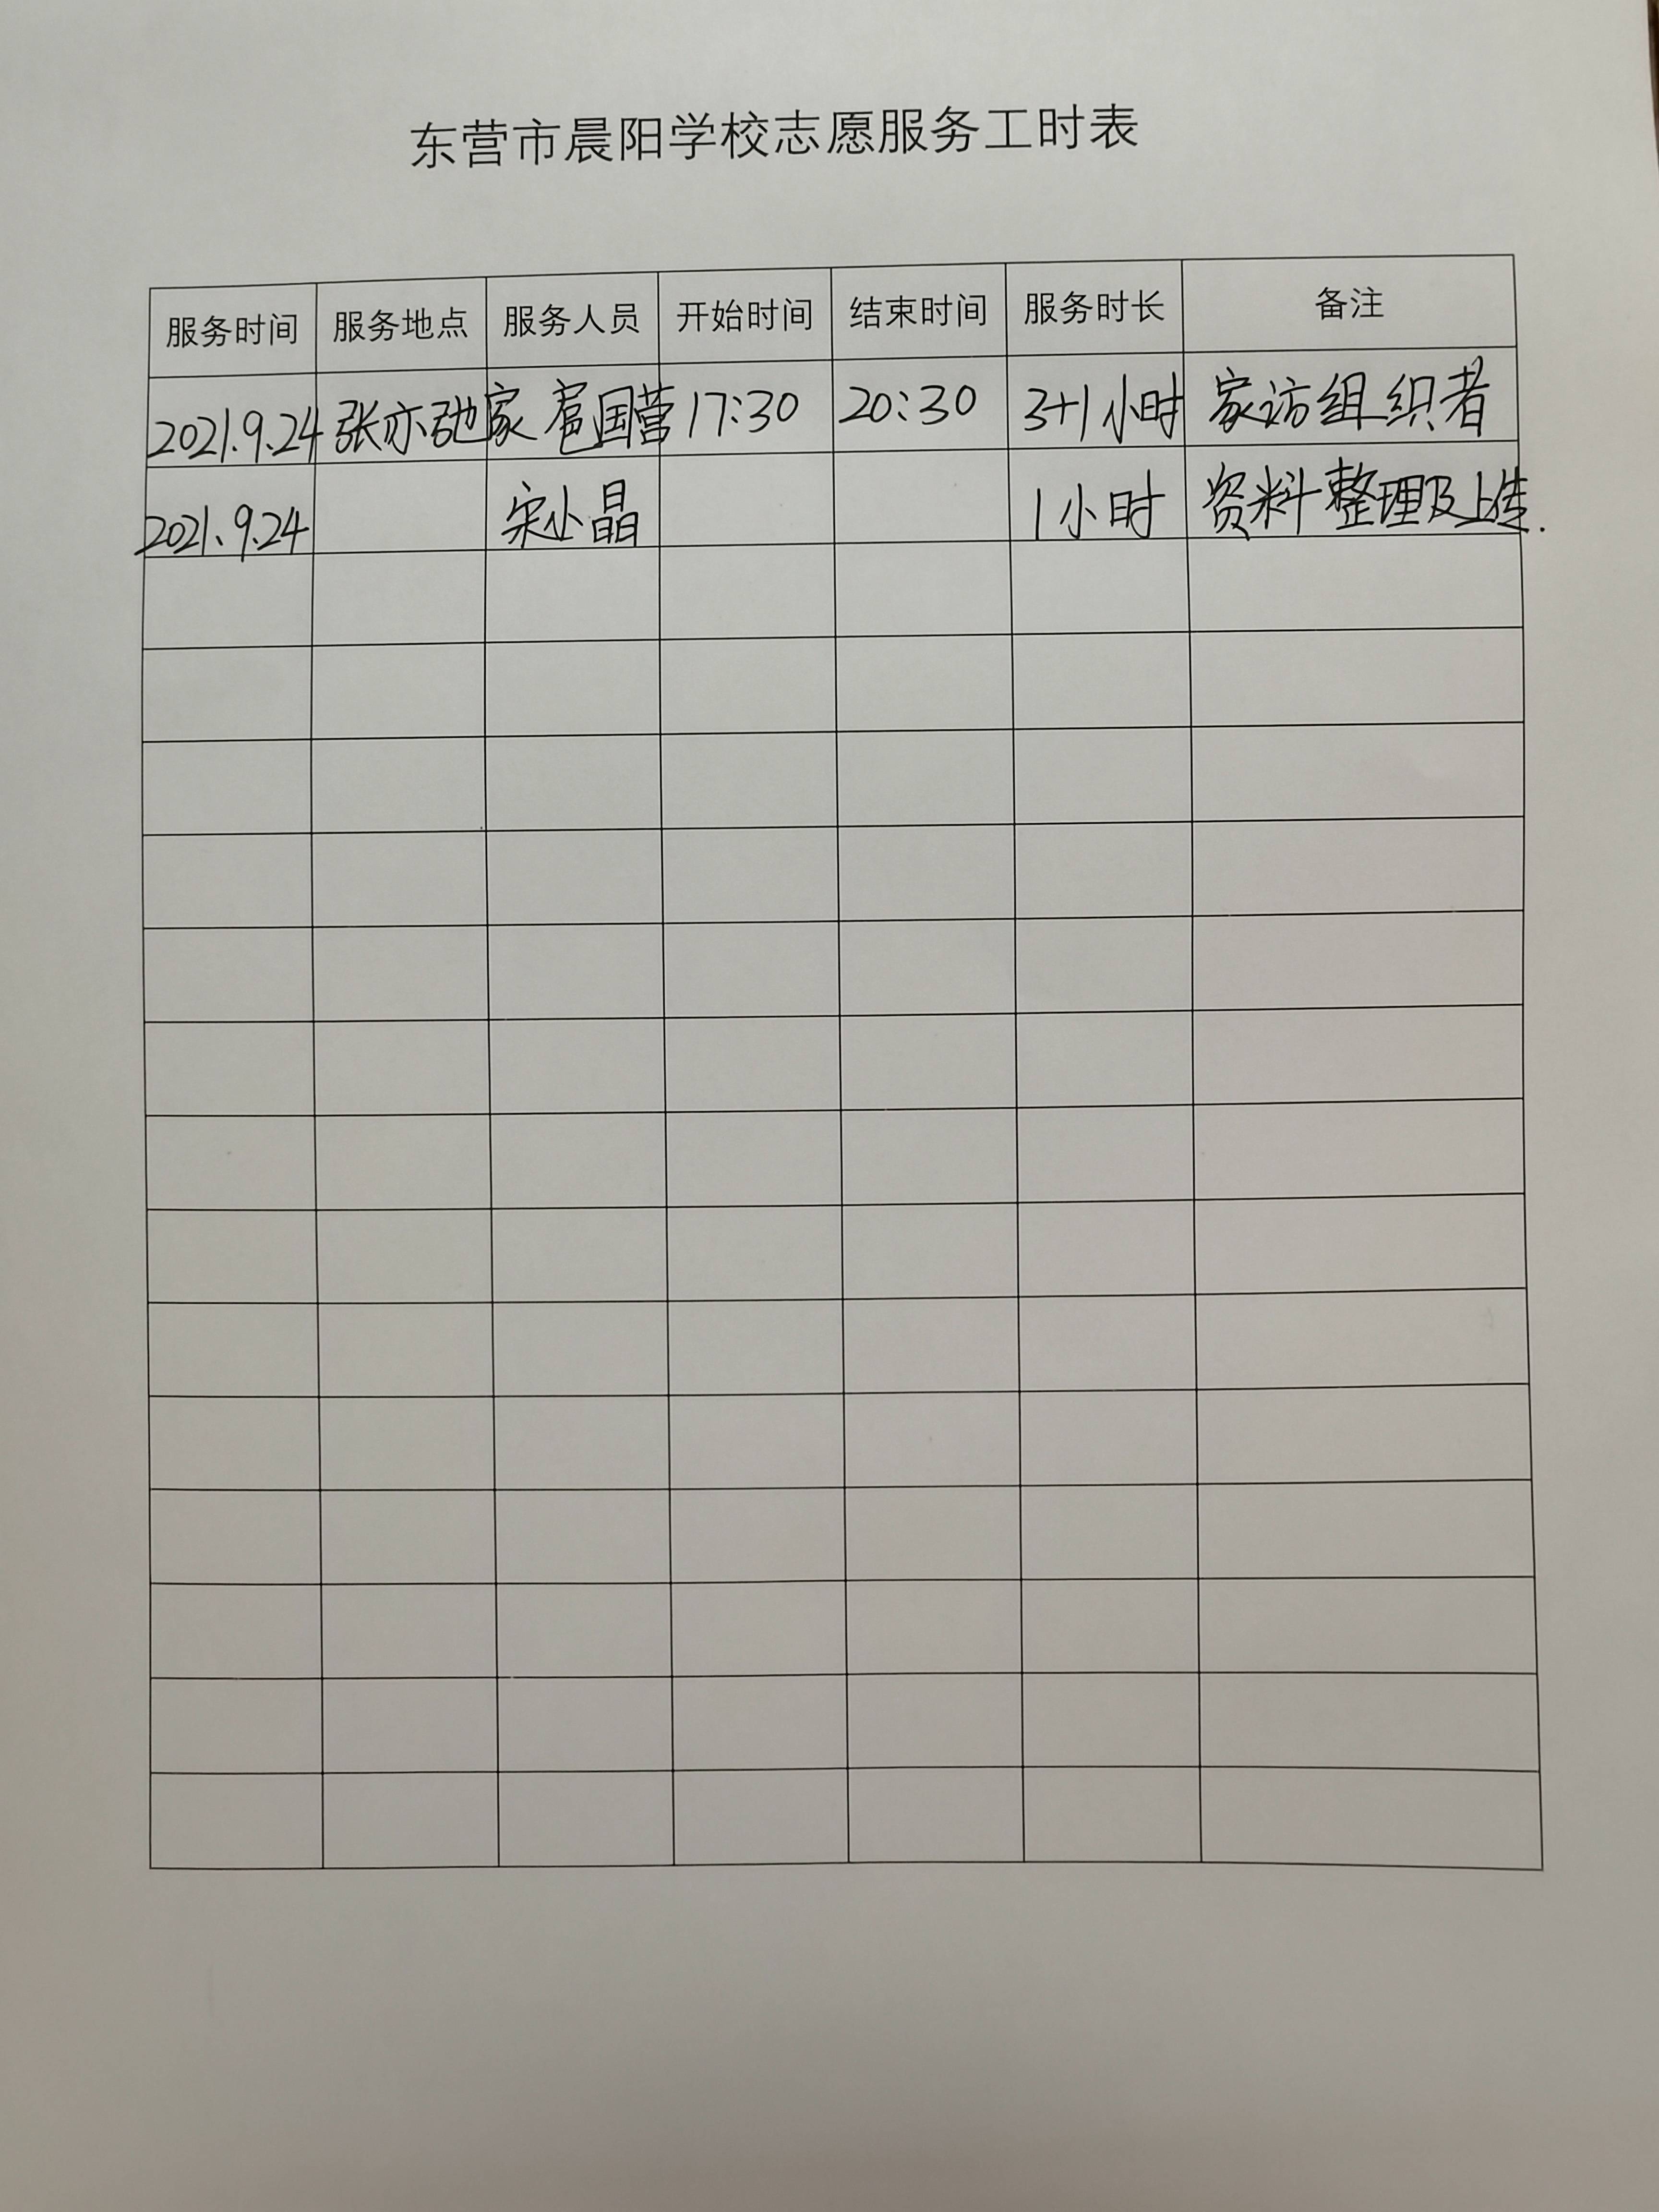 东营市晨阳学校志愿服务工时表
服务时间 服务地点 服务人员 开始时间 结束时间 服务时长 备注
2021.9.24 张亦弛家 国营 17:30 20:30 3+1小时 家访组织者
2021.9.24 宋小晶 1小时 资料整理及上传.